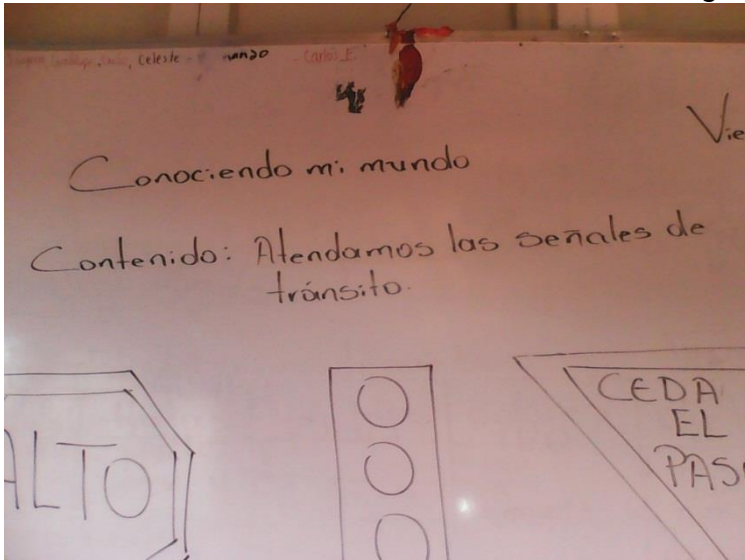 Celeste
Carlos E.
Vie
Conociendo mi mundo
Contenido: Atendamos las señales de
tránsito.
ALTO
CEDA
EL
PASO